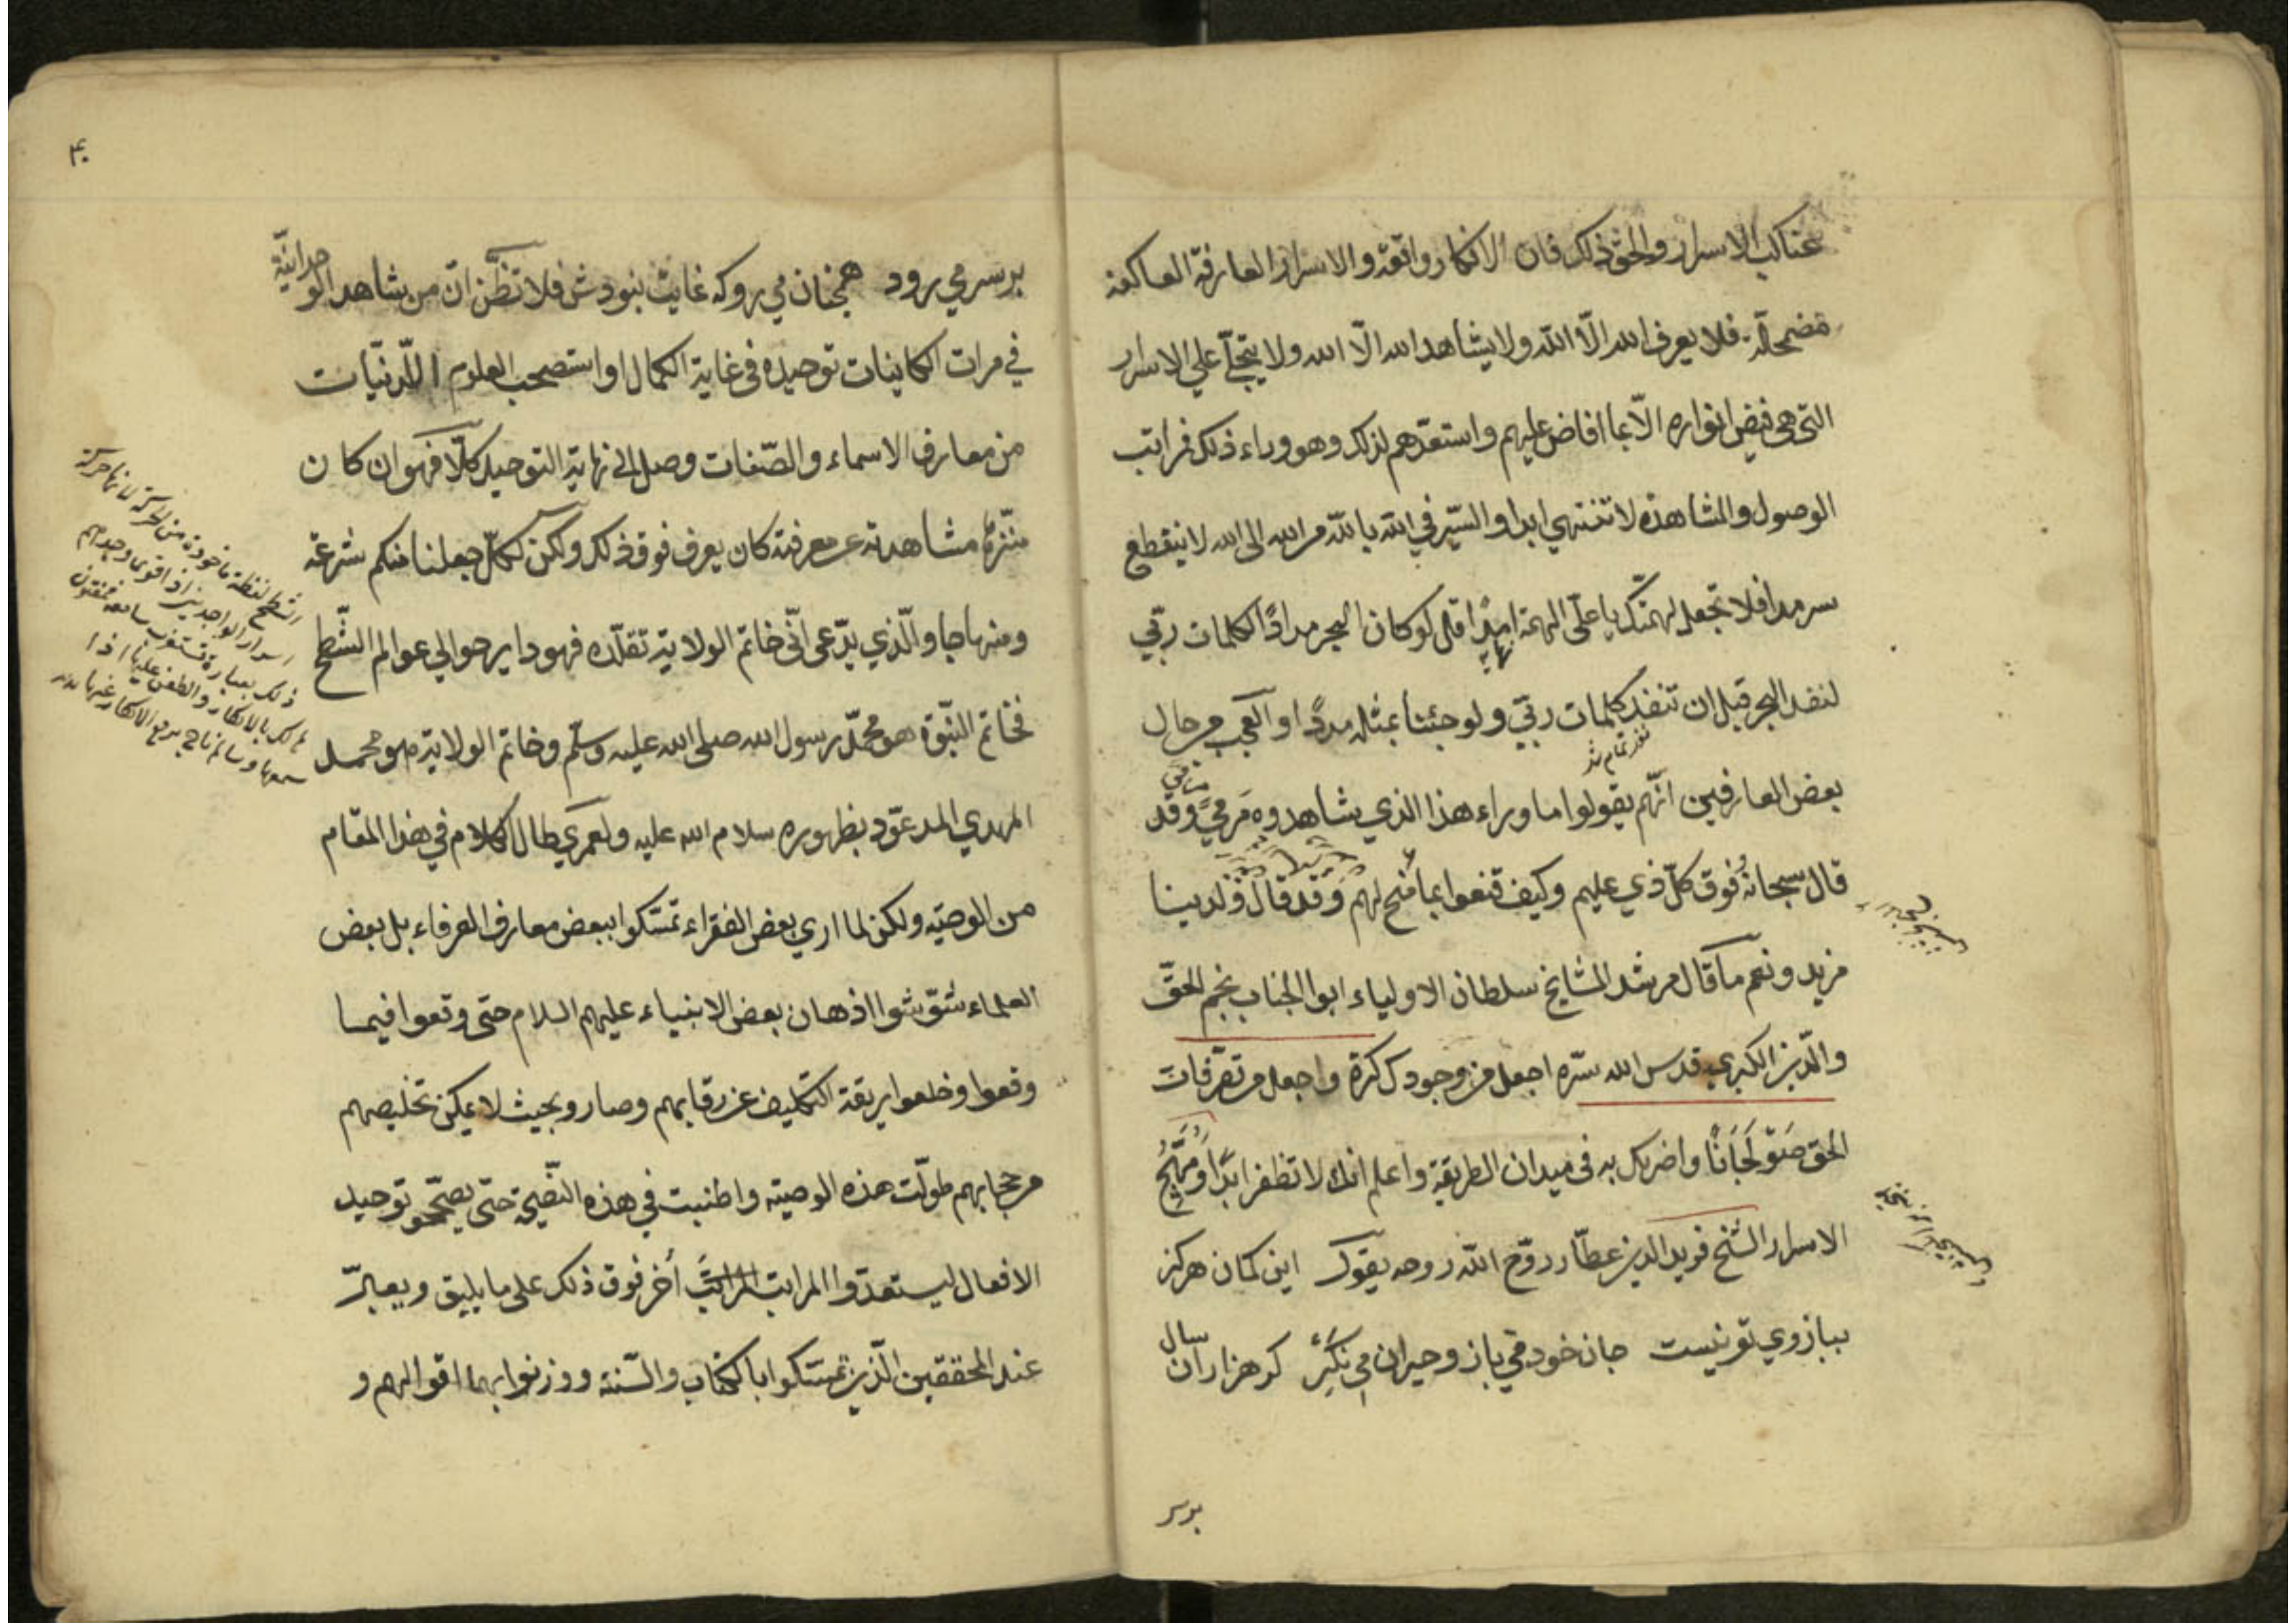 عناكب الاسرار والحق ذلك فان الافكار واقفة والاسرار العارفة العاكفة
مضمحلّة فلا يعرف الله الّا الله ولا يشاهد الله الّا الله ولا يتجلّى علي الاسرار
التي هي فيض انواره الّا بما افاض عليهم واستعدّهم لذلك وهو وراء ذلك فراتب
الوصول والمشاهدة لا تنتهي ابدا والسّير في الله بالله من الله الى الله لا ينقطع
سرمدا فلا تجعل لهمتك يا علّى الهمة امدًا قل لو كان البحر مدادًا لكلمات ربّي
نهاية
لنفد البحر قبل ان تنفد كلمات ربّي ولو جئنا بمثله مددًا والعجب من حال
نفد تمام شد
بعض العارفين انّهم يقولوا ما وراء هذا الذي يشاهدوه مرمي وقد
قال سبحانه فوق كلّ ذي عليم وكيف قنعوا بما منح لهم وقد قال ولدينا
مزيد ونعم ما قال مرشد المشايخ سلطان الاولياء ابو الجناب نجم الحقّ
والدّين الكبري قدس الله سرّه اجعل من وجودك كرة واجعل من تصرّفات
الحق صَوْلَجَانًا واضربك به في ميدان الطريقة واعلم انك لا تظفر ابدًا و
الاسرار الشيخ فريد الدين عطّار روّح الله روحه يقول اين كمان هركز
ببازوي تو نيست جان خود مي باز وحيران مي نكر كر هزاران سال
برسر
۴۰
برسر مي رود همچنان مي رو كه غايت نبودش فلا تظنّن انّ من يشاهد الوحدانيّة
في مرات الكاينات توحيده في غاية الكمال او استصحب العلوم اللّدنّيات
من معارف الاسماء والصّفات وصل الى نهاية التوحيد كلّا فهو ان كان
منزّها مشاهدته عن معرفته كان يعرف فوق ذلك ولكن لكلّ جعلنا منكم شرعة
ومنهاجا والّذي يدّعي انّي خاتم الولاية تقلّده فهو دا يرحو الي عوالم الشّطح
فخاتم النّبوّة هو محمّد رسول الله صلى الله عليه وسلّم وخاتم الولاية هو محمد
المهدي المدعوّد بظهوره سلام الله عليه ولعمري طال الكلام في هذا المقام
من الوصيّه ولكن لما اري بعض الفقراء تمسّكوا ببعض معارف العرفاء بل بعض
العلماء شوّشوا اذهان بعض الانبياء عليهم السلام حتى وقعوا فيما
وقعوا وخلعوا ربقة التكليف عن رقابهم وصاروا بحيث لا يمكن تخليصهم
من حجابهم طوّلت هذه الوصيّه واطنبت في هذه النّصيحة حتّى يصحّحو توحيد
الافعال ليستعدّوا المراتب أخر فوق ذلك على ما يليق ويعبّر
عند المحققين الّذين تمسّكوا بالكتاب والسّنة ووزنوا بهما اقوالهم و
الشطح لفظة ماخوذة من الحركة لانها حركة
اسرار الواجدين اذا قوي وجدهم
ذلك بعبارة تستغرب سامعه فمفتون
هالك بالانكار والطعن عليها اذا
سمعها وسالم ناجي برفع الانكار عنها